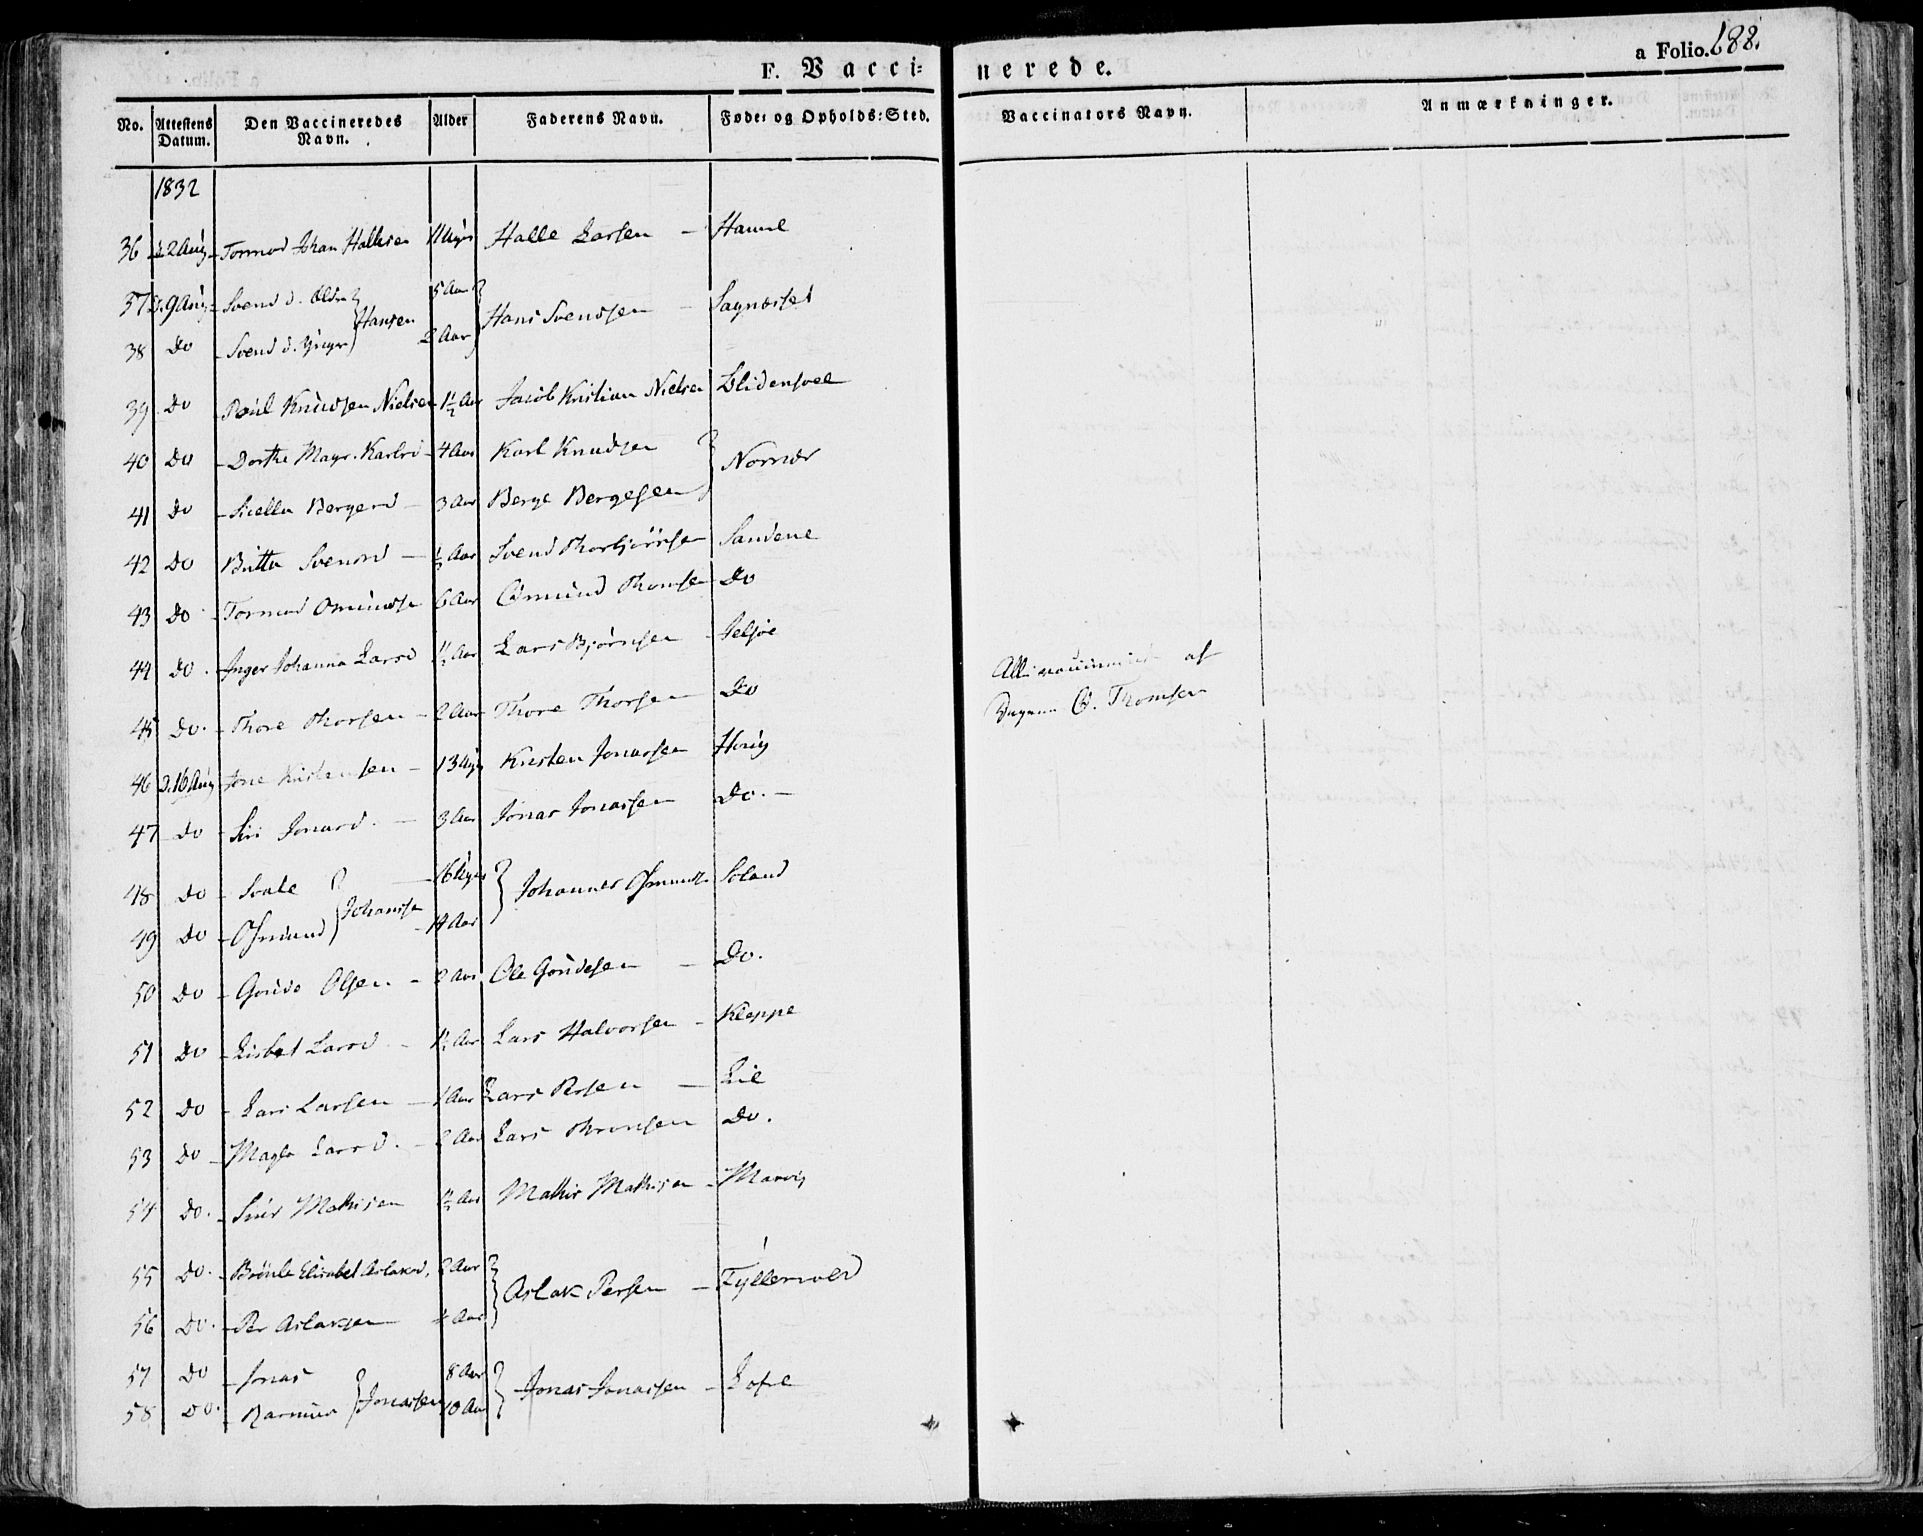 F. Vaccinerede.
a Folio. 188.
No. Attestens Datum. Den Vaccineredes Navn. Alder Faderens Navn. Føde= og Opholds=Sted. Vaccinators Navn. Anmærkninger.
1832
36 d. 2 Aug Tormod Johan Hallesen 11 Uger Halle Larsen — Hamre
37 d. 9 Aug Svend d. Ældre } Hansen 5 Aar } Hans Svendsen —
38 Do Svend d. Yngre 2 Aar
39 Do Poul Knudsen Nielsen 1½ Aar Jacob Kristian Nielsen
40 Do Dorthe Magr. Karlsd 4 Aar Karl Knudsen }
41 Do Bergesd 3 Aar Berge Bergesen
42 Do Britta Svensd — ½ Aar Svend Thorbjörnsen Sandene
43 Do Tormod Omundse 6 Aar Omund Thomsen Do
44 Do. Inger Johanna Larsd 1½ Aar Lars Bjørnsen Jelsøe
45 Do. Thore Thorsen — 2 Aar Thore Thorsen Do
46 D. 16 Aug Jone Kristensen — 13 Uger Kristen Jonassen Houg
47 Do Siri Jonasd. — 3 Aar Jonas Jonassen Do. —
48 Do } Johanse — 16 Uger } Johannes Osmunds. Soland
49 Do Osmund 14 Aar
50 Do Goude Olsen — Aar Ole Goudesen — Do.
51 Do Lisbet Larsd — 1½ Aar Lars Halvorsen — Kleppe
52 Do Lars Larsen — 1 Aar Lars Persen — Lie
53 Do Larsd. — 2 Aar Lars Do.
54 Do. Mathisen ½ Aar Mathis Mathisen — Marvig
55 Do. Elisabet Aslaksd. 2 Aar } Aslak Persen —
56 Do. Per Aslaksen Aar
57 Do Jonas } Jonassen 8 Aar } Jonas Jonassen —
58 Do. Rasmus 10 Aar
Alle vaccinerede af
O. Thomsen